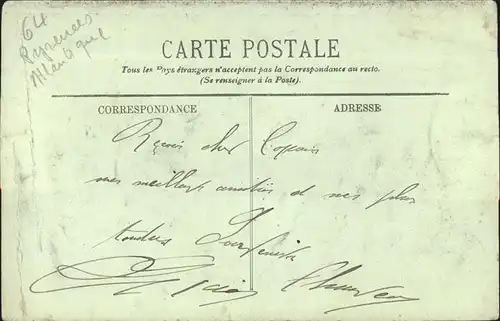 64
Pyrenees
Atlantique
CARTE POSTALE
Tous les Pays étrangers n'acceptent pas la Correspondance au recto.
(Se renseigner à la Poste).
CORRESPONDANCE
ADRESSE
Reçois cher
mes meilleurs amitiés et mes plus
tendres Souvenirs